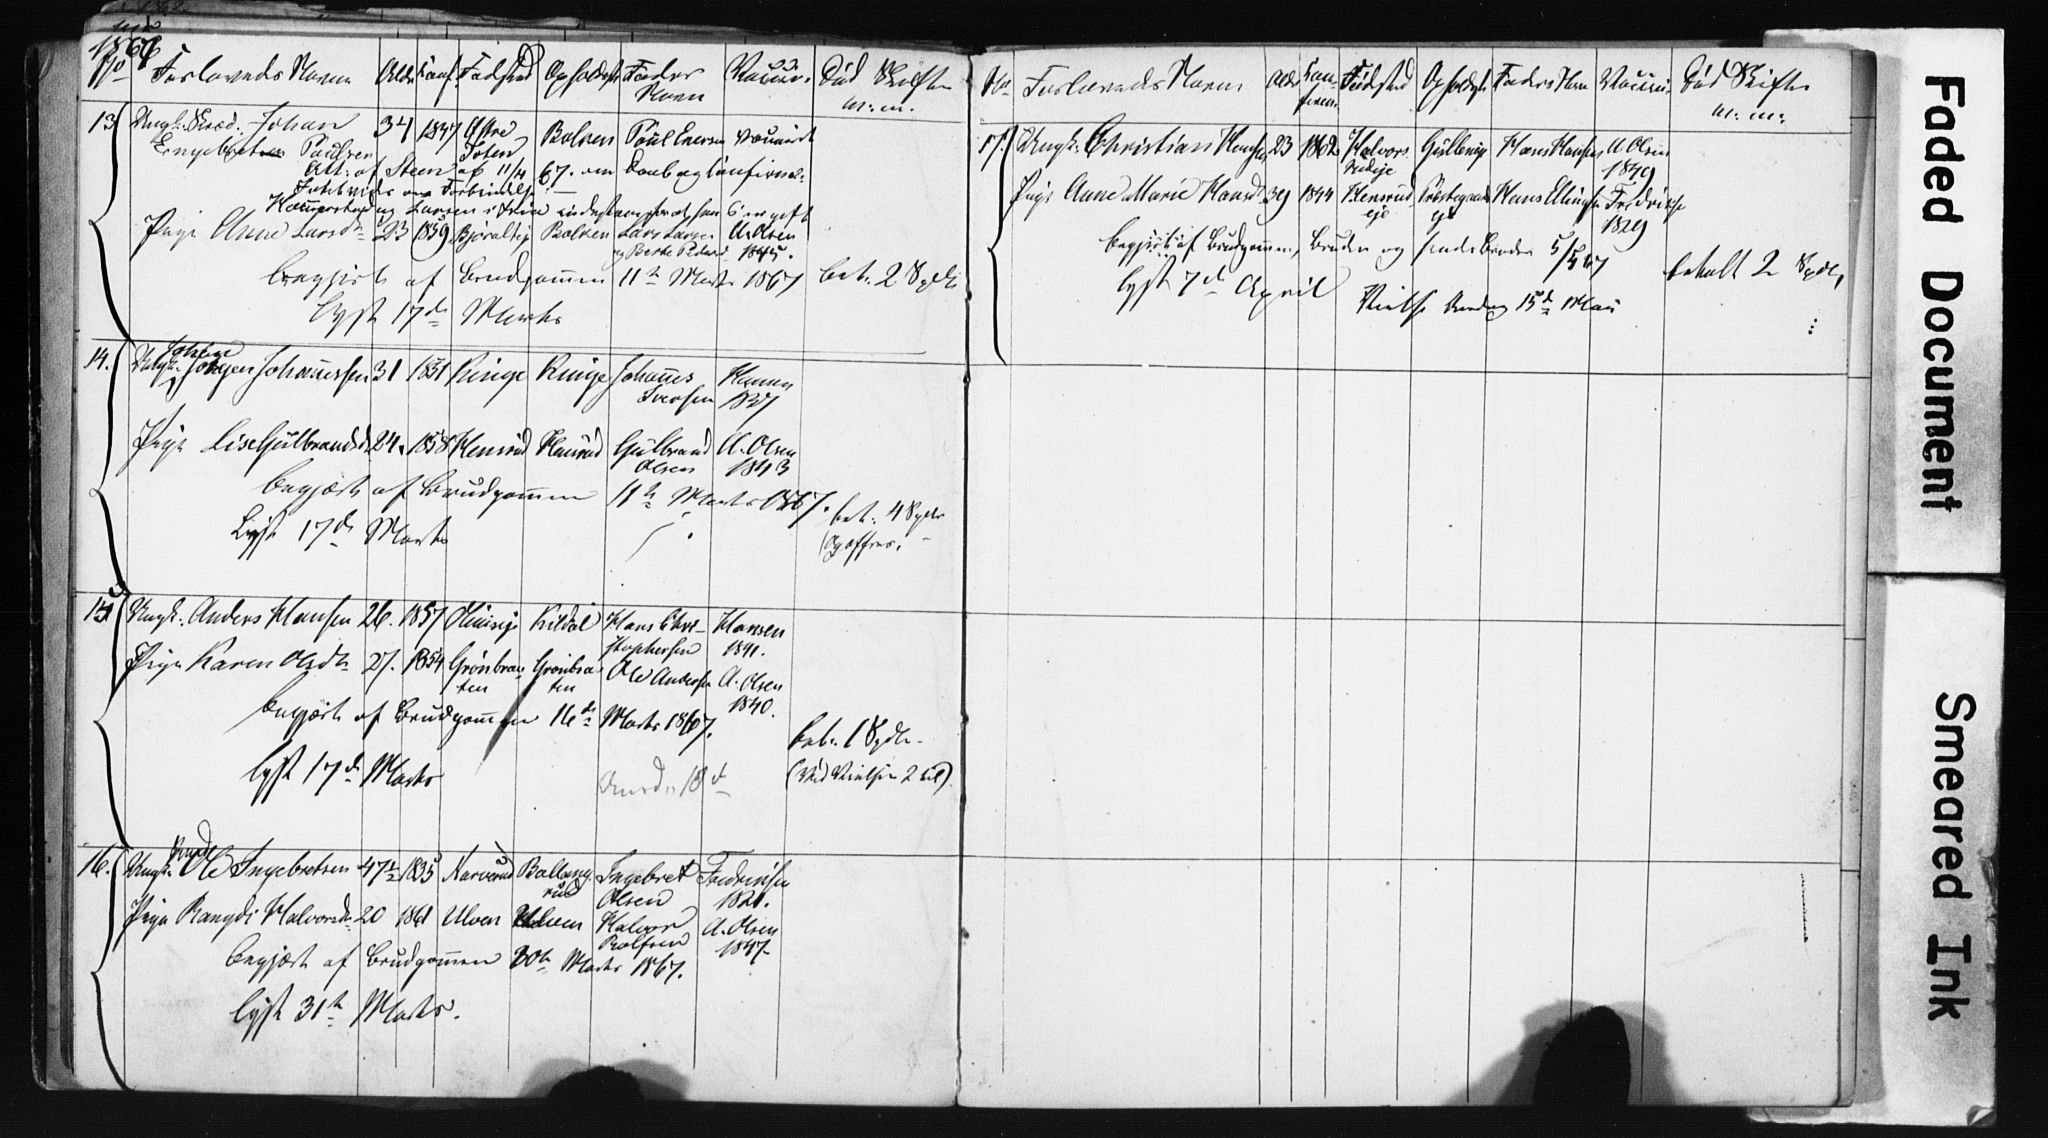 1867
No Forlovedes Navne Alder Conf. Fødested Opholdsst. Faders Navn Vaccin. Død Skifte m: m:
13 Ungk. Johan 34 1847 Østre Toten Bolsen Paul Enersen
Engebret Paulsen
Att: af Steen af 11/4 67. om Daab og Confirmat-
Pige Anne Larsd. 23 1859 Bolsen Lars Larsen A. Olsen 1845.
begjært af Brudgommen 11te Marts 1867 bet. 2 Spdl.
lyst 17de Marts
14. Ungk. Johannessen 31 1851 Ringe Ringe Johannes Iversen Hansen 1837
Pige Lise Gulbrandsd. 24. 1858 Hensrud Hensrud Gulbrand Olsen A. Olsen 1843
begjært af Brudgommen 11te Marts 1867. bet. 4 Spdlr
Lyst 17de Marts (og offres.
15 Ungk. Anders Hansen 26. 1857 Kildal Hans Chri-stophersen Hansen 1841.
Pige Karen Olsdtr 27. 1854 Grønbraaten Grønbraaten Ole Andersen A. Olsen 1840.
begjært af Brudgommen 16de Marts 1867.
bet. 1 Spdlr.
lyst 17de Marts (ved Vielsen 2 til)
16. Ungk. Ole Ingebretsen 47 1/2 1835 Narverud Ballangrud Ingebret Olsen Fredriksen 1821.
Pige Rangdi Halvorsdr 20 1861 Ulven Ulven Halvor Rolfsen A. Olsen 1847.
begjært af Brudgommen 30te Marts 1867.
lyst 31te Marts.
No. Forlovedes Navne Alder Confirm. Fødested Opholdsst Faders Navn Vaccin. Død Skifte m: m:
17. Ungk. Christian Hansen 23 1862 Gullerig Hans Hansen A Olsen 1849
Pige Anne Marie Hansd. 39 1844 Hensrud eje Præstegaards eje Hans Ellingsen Fredriksen 1829
begjært af Brudgommen, Bruden og hendes Broder 5/4 67
lyst 7de April betalt 2 Spdl,
Vielse 15de Mai
Faded Document
Smeared Ink